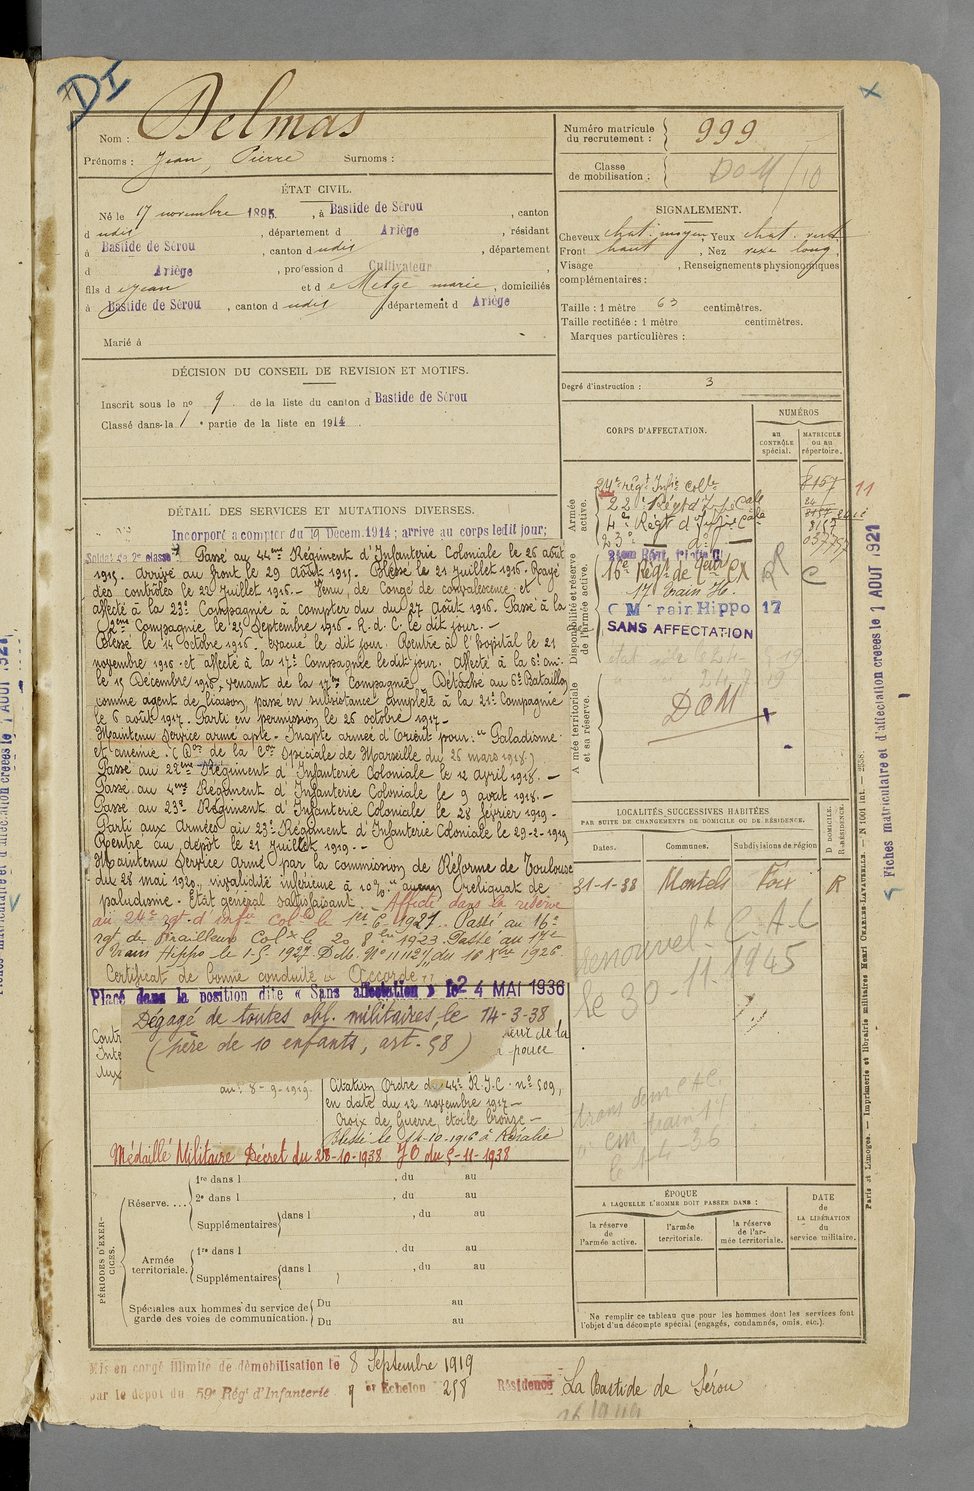 DI
Nom : Delmas
Prénoms : Jean, Pierre Surnoms :
ÉTAT CIVIL.
Né le 17 novembre 1895, à Bastide de Sérou, canton
d udit, département d Ariège, résidant
à Bastide de Sérou, canton d udit, département
d Ariège, profession d Cultivateur,
fils d e Jean et d e Metge marie, domiciliés
à Bastide de Sérou, canton d udit département d Ariège
Marié à
DÉCISION DU CONSEIL DE REVISION ET MOTIFS.
Inscrit sous le no 9 de la liste du canton d Bastide de Sérou
Classé dans la 1e partie de la liste en 1914
DÉTAIL DES SERVICES ET MUTATIONS DIVERSES.
Incorporé a compter du 19 Décem. 1914; arrivé au corps ledit jour;
Soldat de 2e classe Passé au 44me Régiment d'Infanterie Coloniale le 26 août
1915. Arrivé au front le 29 Août 1915. Blessé le 21 Juillet 1916. Rayé
des contrôles le 22 Juillet 1916. - Venu de Congé de convalescence et
affecté à la 23e Compagnie à compter du du 27 Août 1916. Passé à la
2me Compagnie le 25 Septembre 1916. R. d. C. le dit jour. -
Blessé le 14 octobre 1916. évacué le dit jour. Rentré à l'hopital le 21
novembre 1916 et affecté à la 17e Compagnie ledit jour. Affecté à la 5e
le 15 Décembre 1916, venant de la 17me Compagnie. Détaché au 6e Bataillon
comme agent de liaison, passe en subsistance complète à la 21e Compagnie
le 6 août 1917. Parti en permission le 26 octobre 1917 -
Maintenu Service armé apte - Inapte armée d'Orient pour: "Paladisme
et anémie. (Don de la Con spéciale de Marseille du 25 mars 1918.)
Passé au 22me Régiment d'Infanterie Coloniale le 12 Avril 1918. -
Passé au 4me Régiment d'Infanterie Coloniale le 9 août 1918. -
Passé au 23e Régiment d'Infanterie Coloniale le 28 février 1919 -
Parti aux Armées au 23e Régiment d'Infanterie Coloniale le 29-2-1919
Rentré au dépôt le 21 Juillet 1919. -
Maintenu Service Armé par la commission de Réforme de Toulouse
du 28 mai 1920, invalidité inférieure à 10 % reliquat de
paludisme. Etat général satisfaisant. - Affecté dans la réserve
au 24e rgt. d'infie Colle le 1er 6 1921. Passé au 16e
rgt de Tirailleurs Col le 20 8bre 1923. Passé au 17e
Train Hippo le 1-5-1927. D.M. No 11127/ du 16 Xbre 1926.
Certificat de bonne conduite Accordé
Placé dans la position dite « Sans affectation » le 24 MAI 1936
Dégagé de toutes obl. militaires, le 14-3-38
(père de 10 enfants, art. 58)
au: 8-9-1919.
Citation Ordre du 44e R.I.C. no 509,
en date du 12 novembre 1917 -
Croix de Guerre, étoile bronze -
Blessé le 14-10-1916 à Rosalie
Médaillé Militaire Décret du 28-10-1938 JO du 5-11-1938
PÉRIODES D'EXERCICES.
Réserve. ...
1re dans l , du au
2e dans l , du au
Supplémentaires dans l , du au
Armée territoriale.
1re dans l , du au
Supplémentaires dans l , du au
Spéciales aux hommes du service de garde des voies de communication.
Du au
Du au
Mis en congé illimité de démobilisation le 8 Septembre 1919
par le dépôt du 59e Régt d'Infanterie 9 er Echelon 258 Résidence La Bastide de Sérou
Numéro matricule du recrutement : 999
Classe de mobilisation : DOM/10
SIGNALEMENT.
Cheveux chat. moyen, Yeux chat. verdt
Front haut, Nez rexe long,
Visage , Renseignements physionomiques
complémentaires :
Taille : 1 mètre 63 centimètres.
Taille rectifiée : 1 mètre centimètres.
Marques particulières :
Degré d'instruction : 3
CORPS D'AFFECTATION.
NUMÉROS
au CONTRÔLE spécial.
MATRICULE ou au répertoire.
Armée active.
24e régt Infie colle 8157
22e Régt d'Infie Cale
4e Régt d'Infie Cale
23e - do -
Disponibilité et réserve de l'armée active.
16e Régt de Teurs Cx
17 Train H.
C M Train Hippo 17
SANS AFFECTATION
Armée territoriale et sa réserve.
DOM
LOCALITÉS SUCCESSIVES HABITÉES
PAR SUITE DE CHANGEMENTS DE DOMICILE OU DE RÉSIDENCE.
Dates. Communes. Subdivisions de région
D DOMICILE.
R RÉSIDENCE.
31-1-38 Montels Foix R
renouvelt C.A.C
le 30-11-1945
ÉPOQUE
A LAQUELLE L'HOMME DOIT PASSER DANS :
la réserve de l'armée active.
l'armée territoriale.
la réserve de l'armée territoriale.
DATE de LA LIBÉRATION du service militaire.
Ne remplir ce tableau que pour les hommes dont les services font
l'objet d'un décompte spécial (engagés, condamnés, omis, etc.).
Fiches matriculaire et d'affectation créées le 1 AOUT 1921
Paris et Limoges. — Imprimerie et librairie militaires Henri CHARLES-LAVAUZELLE. — N 1001 int. — 2558.